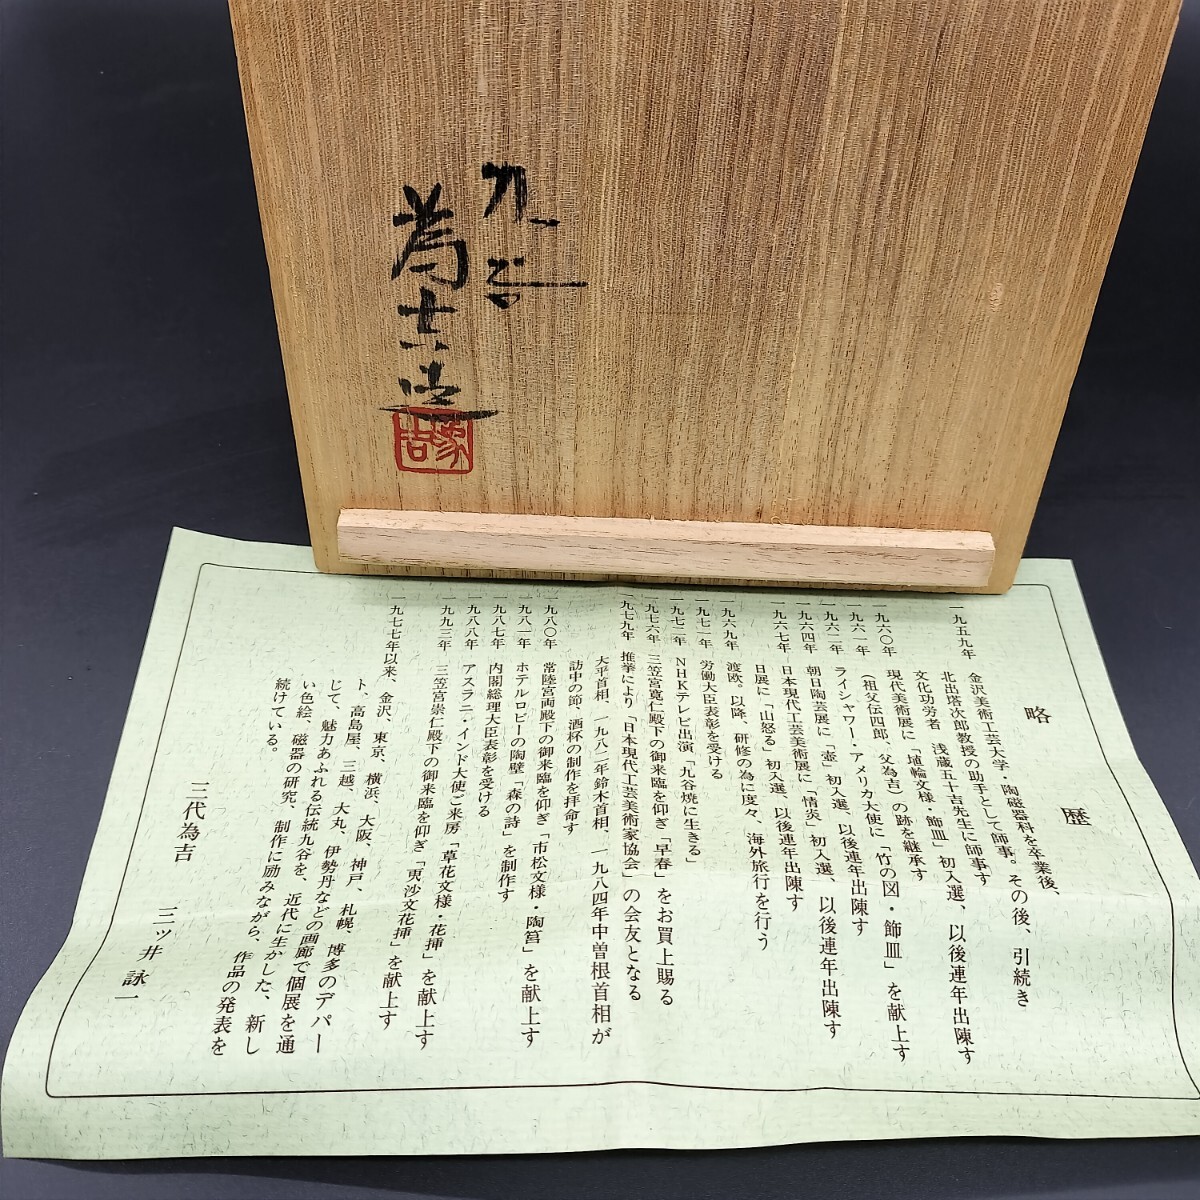 九谷
為吉造
略歴
一九五九年 金沢美術工芸大学・陶磁器科を卒業後、
北出塔次郎教授の助手として師事。その後、引続き
文化功労者 浅蔵五十吉先生に師事す
一九六〇年 現代美術展に「埴輪文様・飾皿」初入選、以後連年出陳す
(祖父伝四郎、父為吉)の跡を継承す
一九六一年 ライシャワー・アメリカ大使に「竹の図・飾皿」を献上す
一九六二年 朝日陶芸展に「壺」初入選、以後連年出陳す
一九六四年 日本現代工芸美術展に「情炎」初入選、以後連年出陳す
一九六七年 日展に「山怒る」初入選、以後連年出陳す
一九六九年 渡欧。以降、研修の為に度々、海外旅行を行う
一九七一年 労働大臣表彰を受ける
一九七二年 NHKテレビ出演「九谷焼に生きる」
一九七六年 三笠宮寛仁殿下の御来臨を仰ぎ「早春」をお買上賜る
一九七九年 推挙により「日本現代工芸美術家協会」の会友となる
大平首相、一九八二年鈴木首相、一九八四年中曽根首相が
訪中の節、酒杯の制作を拝命す
一九八〇年 常陸宮両殿下の御来臨を仰ぎ「市松文様・陶筥」を献上す
一九八一年 ホテルロビーの陶壁「森の詩」を制作す
一九八七年 内閣総理大臣表彰を受ける
一九八八年 アスラニ・インド大使ご来房「草花文様・花挿」を献上す
一九九三年 三笠宮崇仁殿下の御来臨を仰ぎ「更沙文花挿」を献上す
一九七七年以来、金沢、東京、横浜、大阪、神戸、札幌、博多のデパー
ト、高島屋、三越、大丸、伊勢丹などの画廊で個展を通
じて、魅力あふれる伝統九谷を、近代に生かした、新し
い色絵、磁器の研究、制作に励みながら、作品の発表を
続けている。
三代為吉 三ツ井詠一